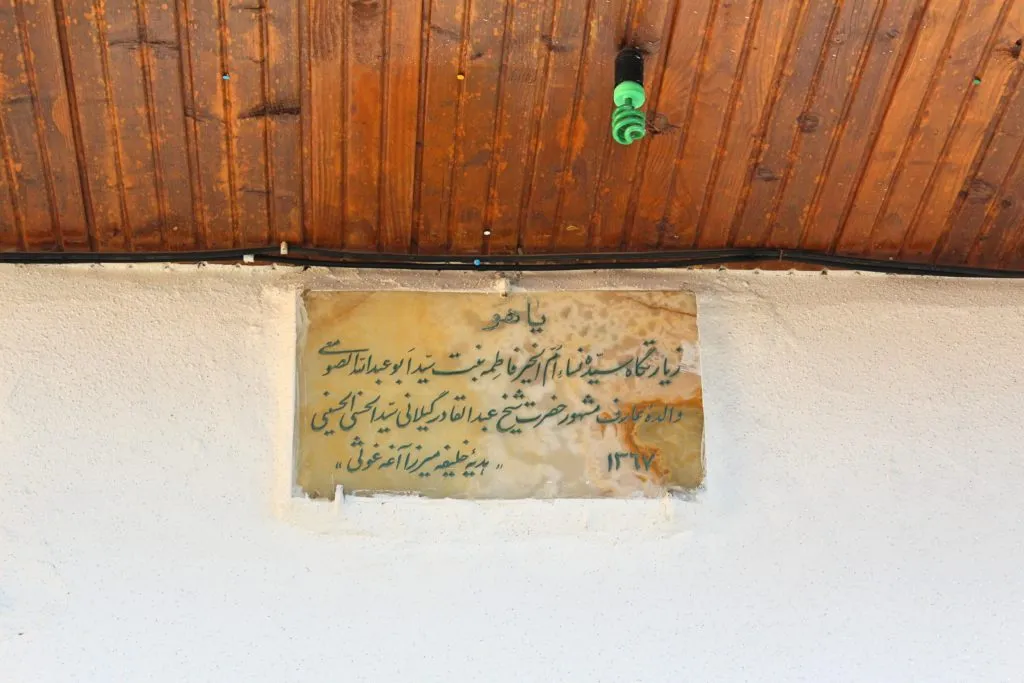 یا هو
زیارتگاه سیّده نساء اُمّ الخیر فاطمه بنت سیّد اَبو عبدالله الصومعی
والدهٔ عارف مشهور حضرت شیخ عبدالقادر گیلانی سیّد الحسنی الحسینی
۱۳٦۷ « هدیهٔ خلیفه میرزا آغه غوثی »